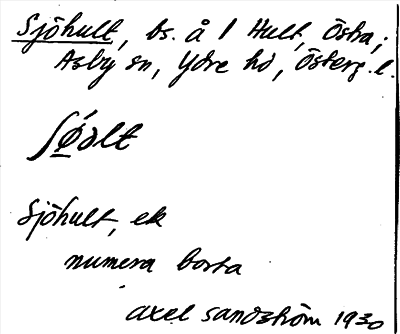 Sjöhult, bs. å 1 Hult, Östra;
Asby sn, Ydre hd, Österg. l.
ʃǿ̠ɷlt
Sjöhult, ek
numera borta
Axel Sandström 1930